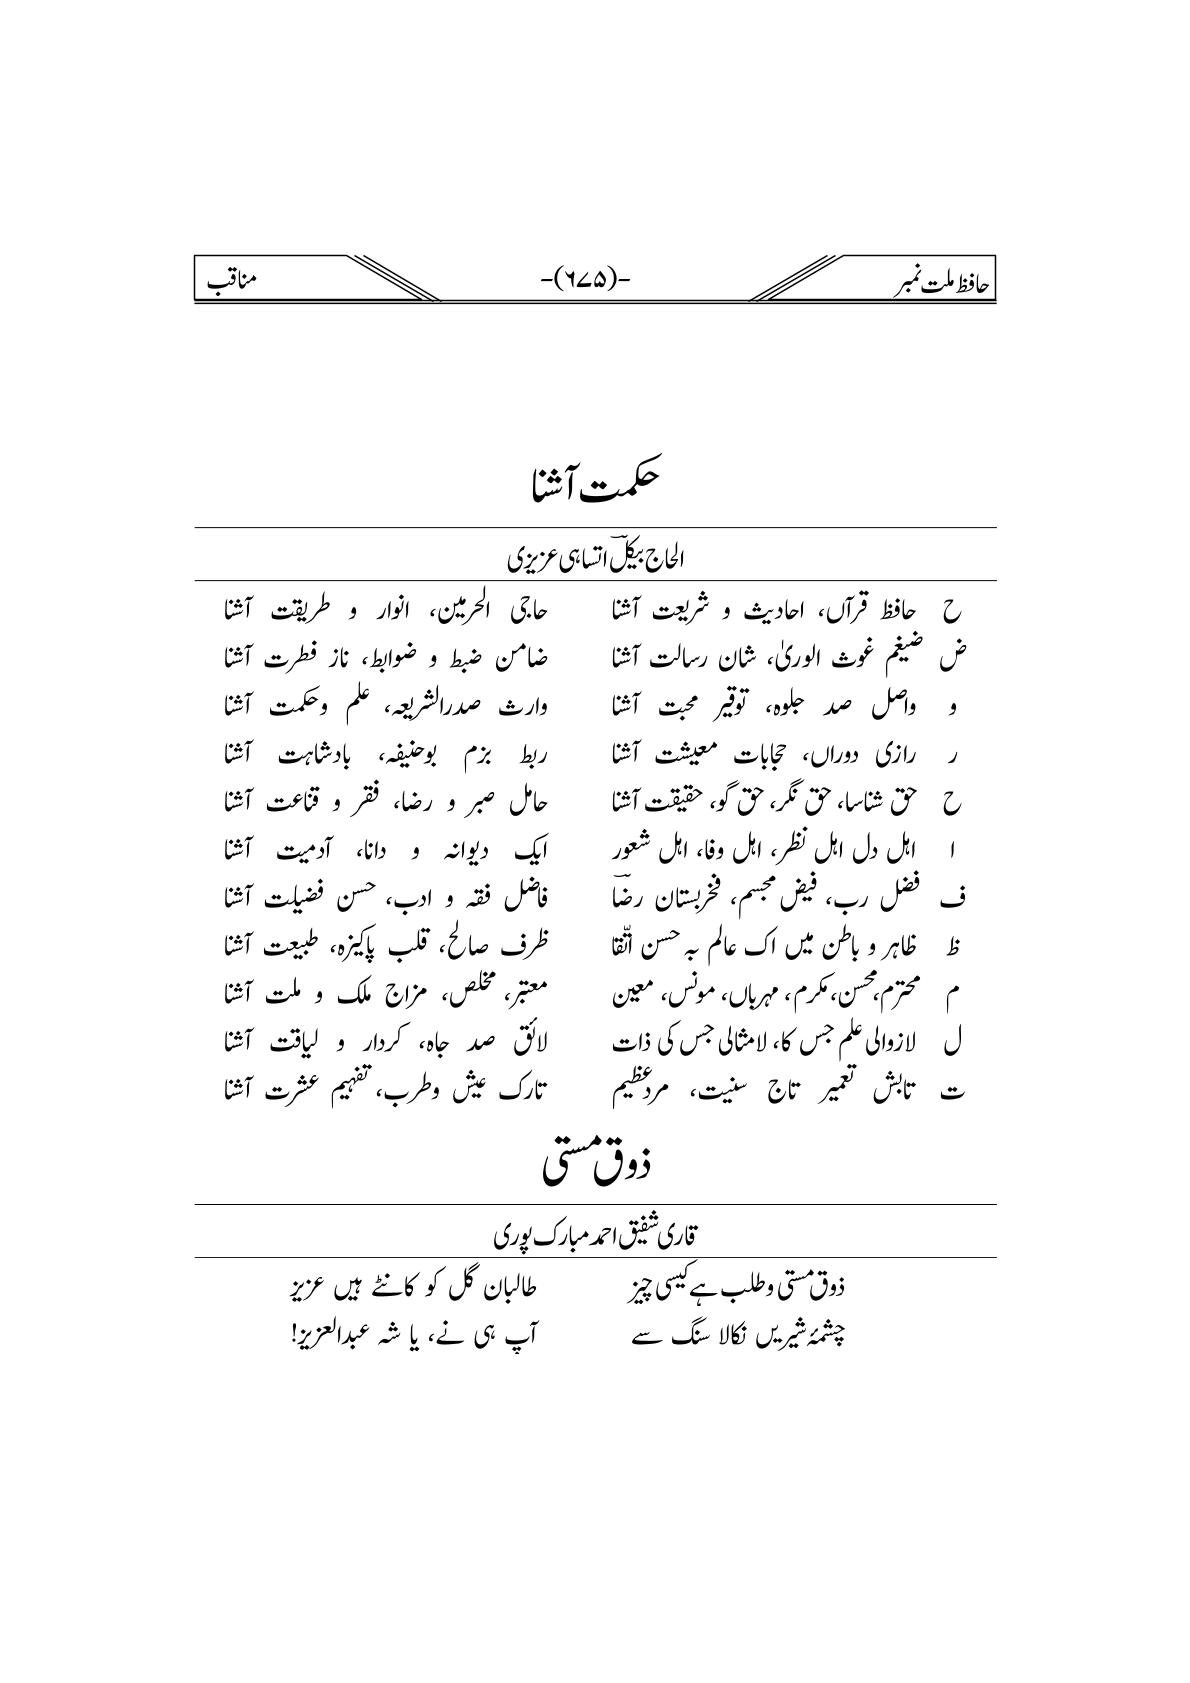 حافظ ملت نمبر -(۶۷۵)- مناقب
حکمت آشنا
الحاج بیکلؔ اتساہی عزیزی
ح حافظ قرآں، احادیث و شریعت آشنا حاجی الحرمین، انوار و طریقت آشنا
ض ضیغم غوث الوریٰ، شان رسالت آشنا ضامن ضبط و ضوابط، ناز فطرت آشنا
و واصل صد جلوہ، توقیر محبت آشنا وارث صدرالشریعہ، علم وحکمت آشنا
ر رازی دوراں، حجابات معیشت آشنا ربط بزم بوحنیفہ، بادشاہت آشنا
ح حق شناسا، حق نگر، حق گو، حقیقت آشنا حامل صبر و رضا، فقر و قناعت آشنا
ا اہل دل اہل نظر، اہل وفا، اہل شعور ایک دیوانہ و دانا، آدمیت آشنا
ف فضل رب، فیض مجسم، فخربستان رضاؔ فاضل فقہ و ادب، حسن فضیلت آشنا
ظ ظاہر و باطن میں اک عالم بہ حسن اتّقا ظرف صالح، قلب پاکیزہ، طبیعت آشنا
م محترم،محسن،مکرم، مہرباں، مونس، معین معتبر، مخلص، مزاج ملک و ملت آشنا
ل لازوالی علم جس کا، لامثالی جس کی ذات لائق صد جاہ، کردار و لیاقت آشنا
ت تابش تعمیر تاج سنیت، مردعظیم تارک عیش وطرب، تفہیم عشرت آشنا
ذوق مستی
قاری شفیق احمد مبارک پوری
ذوق مستی وطلب ہے کیسی چیز طالبان گل کو کانٹے ہیں عزیز
چشمۂ شیریں نکالا سنگ سے آپ ہی نے، یا شہ عبدالعزیز!